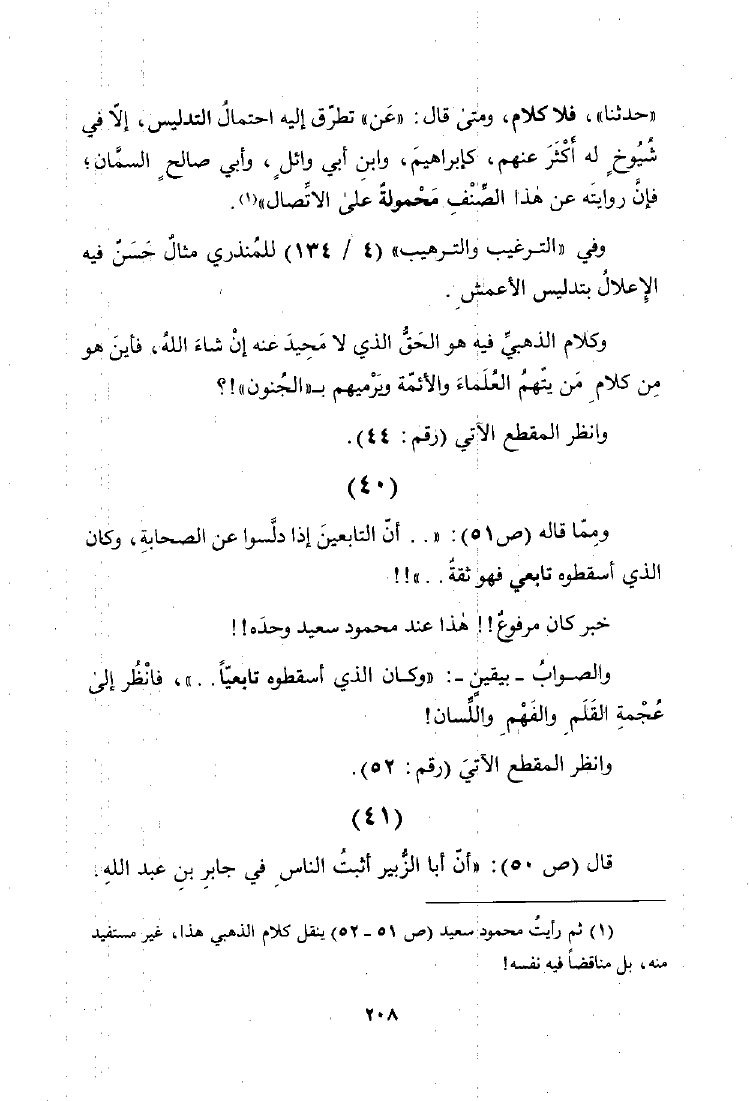 «حدثنا»، فلا كلام، ومتىٰ قال: «عَن» تطرّق إليه احتمالُ التدليس، إلّا في
شُيُوخٍ له أَكْثَرَ عنهم، كإبراهيمَ، وابنِ أبي وائلٍ، وأبي صالحٍ السمَّان؛
فإنَّ روايتَه عن هٰذا الصِّنْفِ مَحْمولةٌ علىٰ الاتِّصال»(١).
وفي «الترغيب والترهيب» (٤ / ١٣٤) للمُنذري مثالٌ حَسَنٌ فيه
الإِعلالُ بتدليس الأعمشِ.
وكلام الذهبيِّ فيه هو الحَقُّ الذي لا مَحِيدَ عنه إنْ شاءَ اللهُ، فأينَ هو
مِن كلامِ مَن يتّهمُ العُلَماءَ والأئمّة ويَرْميهم بـ«الجُنون»!؟
وانظر المقطع الآتي (رقم: ٤٤).
(٤٠)
وممّا قاله (ص٥١): «.. أنّ التابعينَ إذا دلَّسوا عن الصحابةِ، وكان
الذي أسقطوه تابعي فهو ثقةٌ..»!!
خبر كان مرفوعٌ!! هٰذا عند محمود سعيد وحدَه!!
والصوابُ ـ بيقينٍ ـ: «وكان الذي أسقطوه تابعيّاً..»، فانْظُر إلىٰ
عُجْمةِ القَلَمِ والفَهْمِ واللِّسان!
وانظر المقطع الآتيَ (رقم: ٥٢).
(٤١)
قال (ص ٥٠): «أنّ أبا الزُّبير أثبتُ الناسِ في جابرِ بنِ عبد اللهِ.
(١) ثم رأيتُ محمود سعيد (ص ٥١ ـ ٥٢) ينقل كلام الذهبي هذا، غير مستفيد
منه، بل مناقضاً فيه نفسه!
٢٠٨